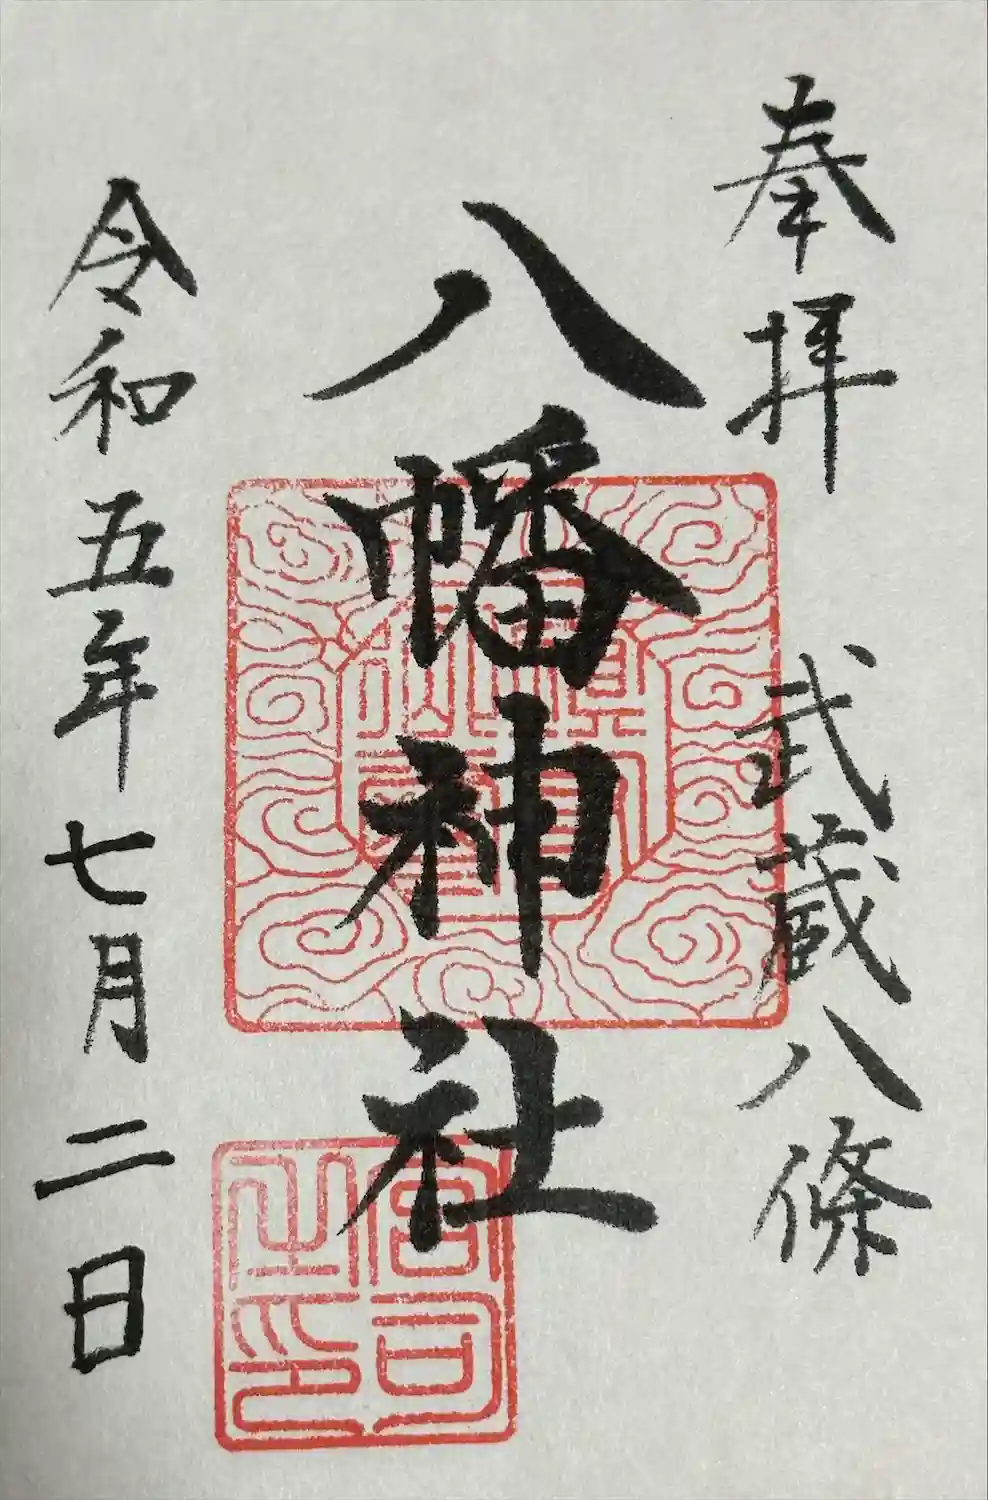 奉拝
武蔵八條
八幡神社
令和五年七月二日
宮司之印